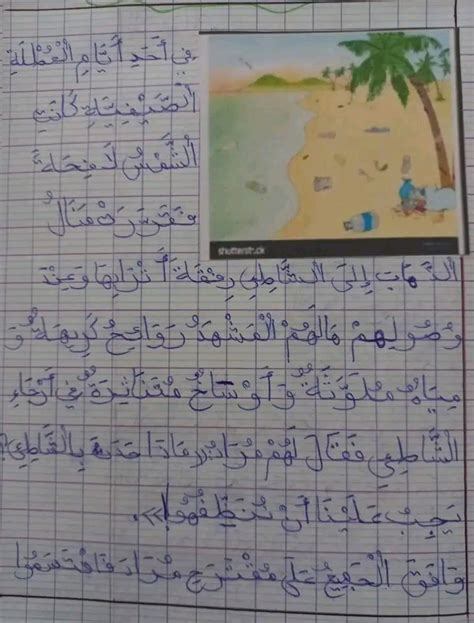 في أَحَدِ أَيَّامِ الْعُطْلَةِ
الصَّيْفِيَّةِ كَانَتِ
الْشَّمْسُ لَافِحَةً
فَقَرَّرَتْ مَنَالُ
الذَّهَابَ إِلَى الشَّاطِئِ رِفْقَةَ أَتْرَابِهَا وَعِنْدَ
وُصُولِهِمْ هَالَهُمْ الْمَشْهَدُ رَوَائِحُ كَرِيهَةٌ وَ
مِيَاهٌ مُلَوَّثَةٌ وَ أَوْسَاخٌ مُتَنَاثِرَةٌ فِي أَرْجَاءِ
الْشَّاطِئِ فَقَالَ لَهُمْ مُرَادُ مَاذَا حَدَثَ بِالْشَّاطِئِ!
يَجِبُ عَلَيْنَا أَنْ نُنَظِّفَهُ!>>.
وَافَقَ الْجَمِيعُ عَلَى مُقْتَرَحِ مُرَادَ فَاقْتَسَمُوا
shutterstock